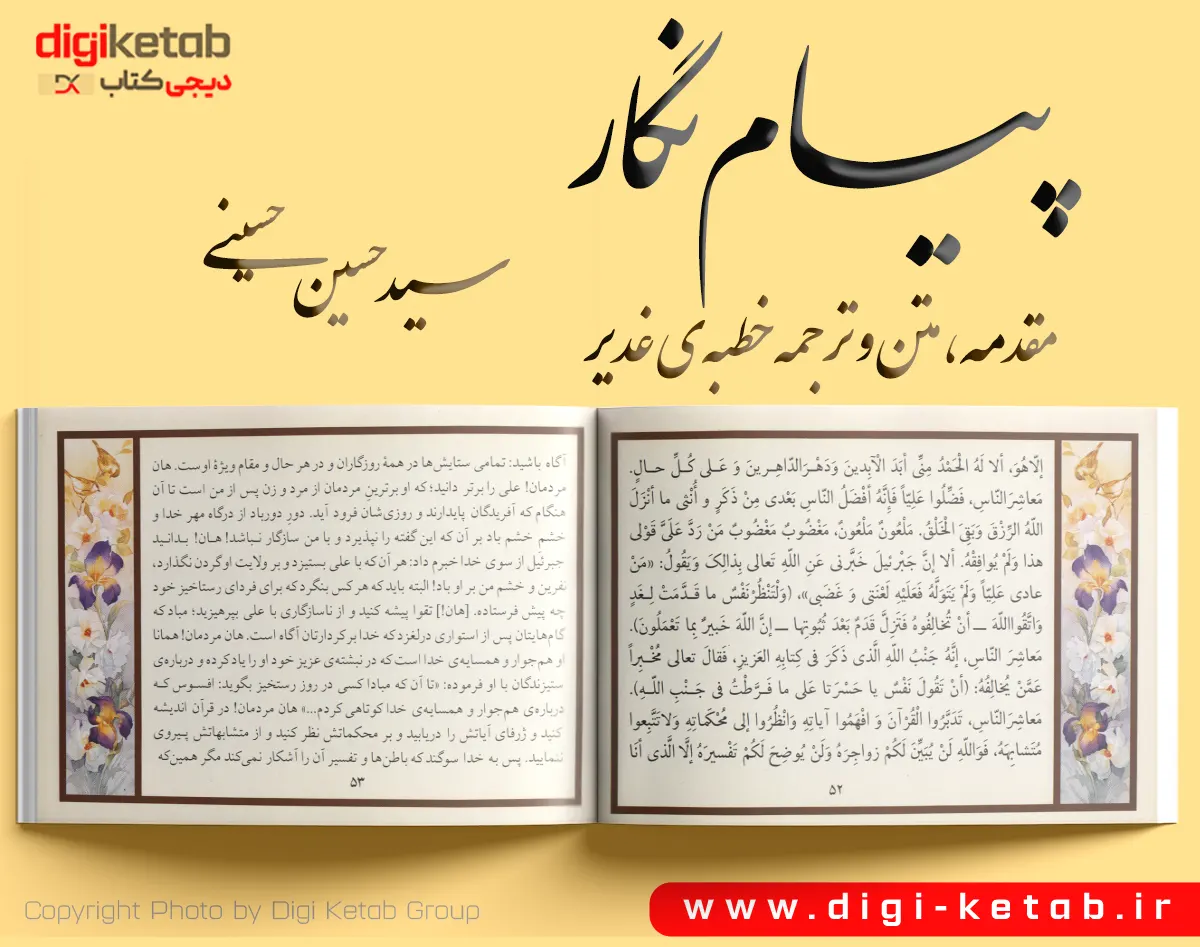 digiketab
دیجی کتاب
پیام نگار
سید حسین حسینی
مقدمه، متن و ترجمه خطبه‌ی غدیر
إلّاهُوَ، ألا لَهُ الْحَمْدُ مِنِّی أبَدَ الْآبِدینَ وَدَهْرَالدّاهِرینَ وَ عَلی کُلِّ حالٍ.
مَعاشِرَالنّاسِ، فَضِّلُوا عَلِیّاً فَإنَّهُ أفْضَلُ النّاسِ بَعْدی مِنْ ذَکَرٍ و أُنْثی ما أنْزَلَ
اللهُ الرِّزْقَ وَبَقِیَ الْخَلْقُ. مَلْعُونٌ مَلْعُونٌ، مَغْضُوبٌ مَغْضُوبٌ مَنْ رَدَّ عَلَیَّ قَوْلی
هذا وَلَمْ یُوافِقْهُ. ألا إنَّ جَبْرئیلَ خَبَّرَنی عَنِ اللهِ تَعالی بِذالِکَ وَیَقُولُ: «مَنْ
عادی عَلِیّاً وَلَمْ یَتَوَلَّهُ فَعَلَیْهِ لَعْنَتی وَ غَضَبی»، (وَلْتَنْظُرْنَفْسٌ ما قَدَّمَتْ لِغَدٍ
وَاتَّقُوااللهَ ــ أنْ تُخالِفُوهُ فَتَزِلَّ قَدَمٌ بَعْدَ ثُبُوتِها ــ إنَّ اللهَ خَبیرٌ بِما تَعْمَلُونَ).
مَعاشِرَ النّاسِ، إنَّهُ جَنْبُ اللهِ الَّذی ذَکَرَ فی کِتابِهِ العَزیزِ، فَقالَ تعالی مُخْبِراً
عَمَّنْ یُخالِفُهُ: (أنْ تَقُولَ نَفْسٌ یا حَسْرَتا عَلی ما فَرَّطْتُ فی جَنْبِ اللهِ).
مَعاشِرَالنّاسِ، تَدَبَّرُوا الْقُرْآنَ وَ افْهَمُوا آیاتِهِ وَانْظُرُوا إلی مُحْکَماتِهِ وَلاتَتَّبِعوا
مُتَشابِهَهُ، فَوَاللهِ لَنْ یُبَیِّنَ لَکُمْ زواجِرَهُ وَلَنْ یُوضِحَ لَکُمْ تَفْسیرَهُ إلَّا الَّذی أنَا
۵۲
آگاه باشید: تمامی ستایش‌ها در همهٔ روزگاران و در هر حال و مقام ویژهٔ اوست. هان
مردمان! علی را برتر دانید؛ که او برترین مردمان از مرد و زن پس از من است تا آن
هنگام که آفریدگان پایدارند و روزی‌شان فرود آید. دورِ دورباد از درگاه مهر خدا و
خشم خشم باد بر آن که این گفته را نپذیرد و با من سازگار نباشد! هان! بدانید
جبرئیل از سوی خدا خبرم داد: هر آن که با علی بستیزد و بر ولایت او گردن نگذارد،
نفرین و خشم من بر او باد! البته باید که هر کس بنگرد که برای فردای رستاخیز خود
چه پیش فرستاده. [هان!] تقوا پیشه کنید و از ناسازگاری با علی بپرهیزید؛ مباد که
گام‌هایتان پس از استواری درلغزد که خدا بر کردارتان آگاه است. هان مردمان! همانا
او هم‌جوار و همسایه‌ی خدا است که در نبشته‌ی عزیز خود او را یاد کرده و درباره‌ی
ستیزندگان با او فرموده: «تا آن که مبادا کسی در روز رستخیز بگوید: افسوس که
درباره‌ی هم‌جوار و همسایه‌ی خدا کوتاهی کردم...» هان مردمان! در قرآن اندیشه
کنید و ژرفای آیاتش را دریابید و بر محکماتش نظر کنید و از متشابهاتش پیروی
ننمایید. پس به خدا سوگند که باطن‌ها و تفسیر آن را آشکار نمی‌کند مگر همین‌که
۵۳
Copyright Photo by Digi Ketab Group
www.digi-ketab.ir